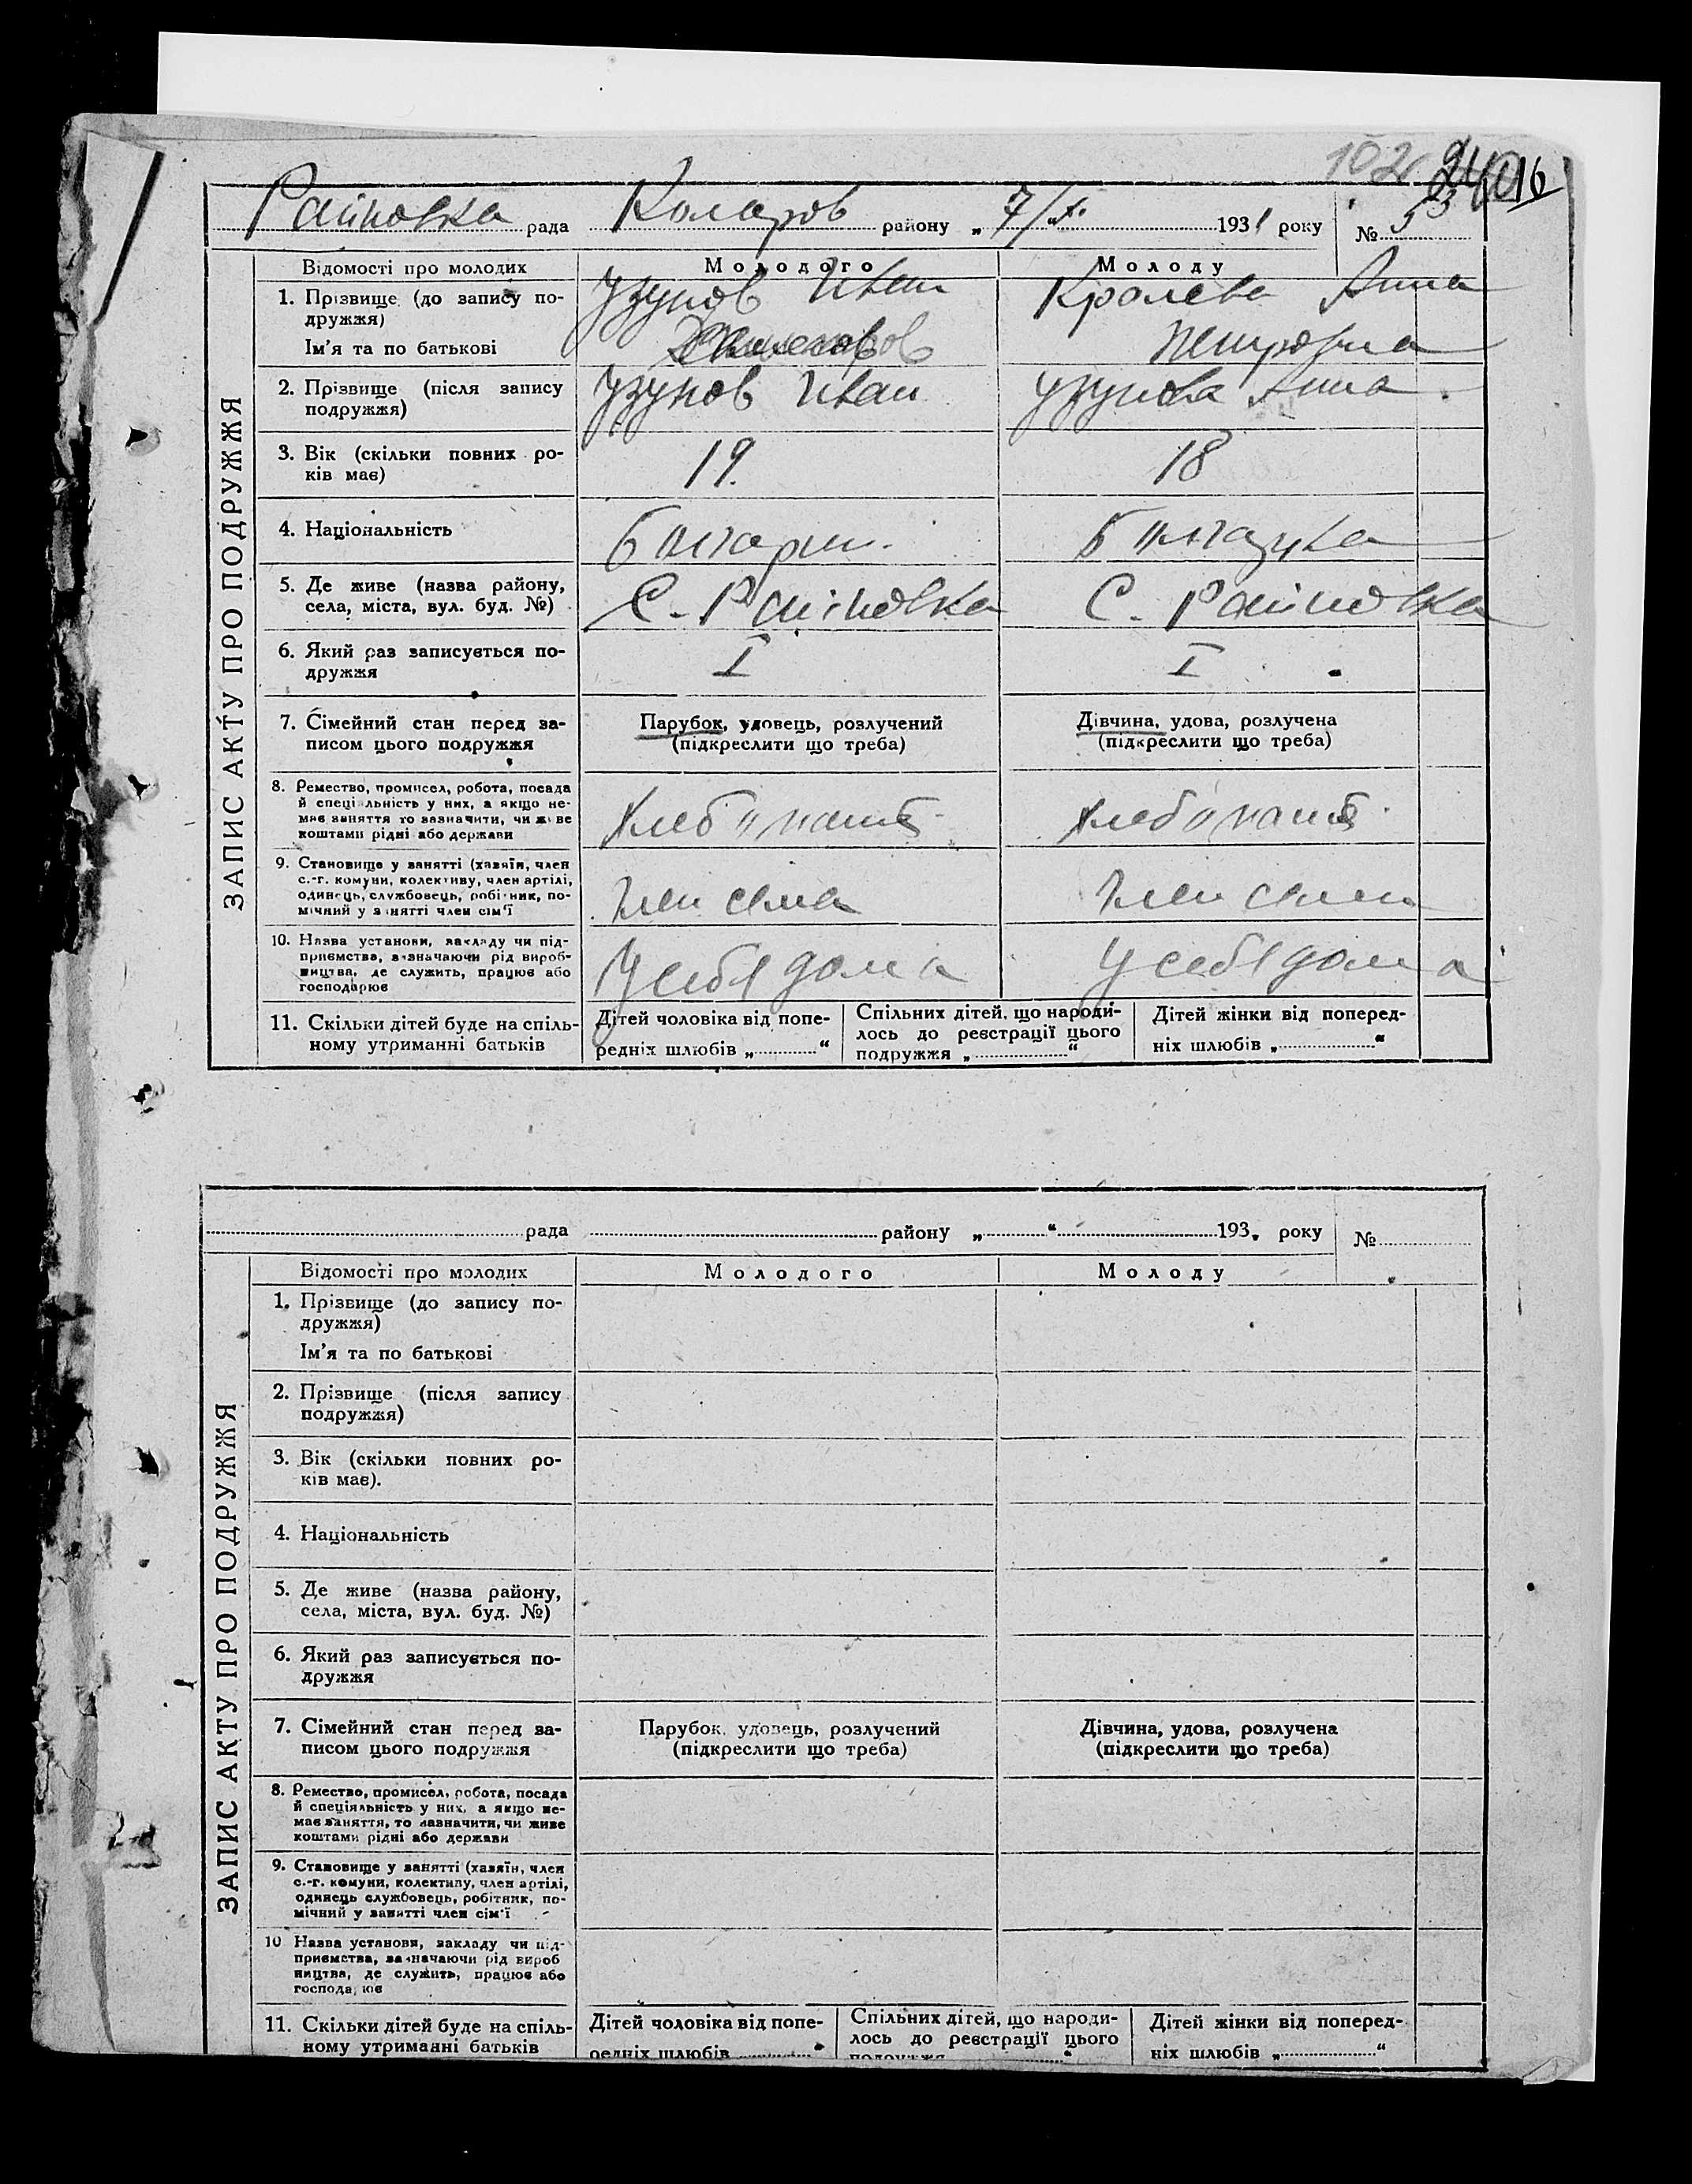 102
Райновка рада Коларов району „7/X. 1931 року № 53
ЗАПИС АКТУ ПРО ПОДРУЖЖЯ
Відомості про молодих Молодого Молоду
1. Прізвище (до запису по-
дружжя)
Узунов Иван Кролева Анна
Ім'я та по батькові Петровна
2. Прізвище (після запису
подружжя)
Узунов Иван Узунова Анна
3. Вік (скільки повних ро-
ків має)
19. 18
4. Національність Болгарин. Болгарка
5. Де живе (назва району,
села, міста, вул. буд. №)
С. Райновка С. Райновка
6. Який раз записується по-
дружжя
I I
7. Сімейний стан перед за-
писом цього подружжя
Парубок, удовець, розлучений
(підкреслити що треба)
Дівчина, удова, розлучена
(підкреслити що треба)
8. Ремество, промисел, робота, посада
й спеціальність у них, а якщо не-
має заняття то зазначити, чи живе
коштами рідні або держави
9. Становище у занятті (хазяїн, член
с.-г. комуни, колективу, член артілі,
одинець, службовець, робітник, по-
мічний у занятті член сім'ї
Член семи Член семи
10. Назва установи, закладу чи під-
приємства, зазначаючи рід вироб-
ництва, де служить, працює або
господарює
У себя дома У себя дома
11. Скільки дітей буде на спіль-
ному утриманні батьків
Дітей чоловіка від попе-
редніх шлюбів „ “
Спільних дітей, що народи-
лось до реєстрації цього
подружжя „ “
Дітей жінки від поперед-
ніх шлюбів „ “
рада району „ “ 193 року №
ЗАПИС АКТУ ПРО ПОДРУЖЖЯ
Відомості про молодих Молодого Молоду
1. Прізвище (до запису по-
дружжя)
Ім'я та по батькові
2. Прізвище (після запису
подружжя)
3. Вік (скільки повних ро-
ків має).
4. Національність
5. Де живе (назва району,
села, міста, вул. буд. №)
6. Який раз записується по-
дружжя
7. Сімейний стан перед за-
писом цього подружжя
Парубок, удовець, розлучений
(підкреслити що треба)
Дівчина, удова, розлучена
(підкреслити що треба)
8. Ремество, промисел, робота, посада
й спеціяльність у них, а якщо не-
має заняття, то зазначити, чи живе
коштами рідні або держави
9. Становище у занятті (хазяїн, член
с.-г. комуни, колективу, член артілі,
одинець службовець, робітник, по-
мічний у занятті член сім'ї
10 Назва установи, закладу чи під-
приємства, зазначаючи рід вироб
ництва, де служить, працює або
господарює
11. Скільки дітей буде на спіль-
ному утриманні батьків
Дітей чоловіка від попе-
редніх шлюбів “
Спільних дітей, що народи-
лось до реєстрації цього
подружжя “
Дітей жінки від поперед-
ніх шлюбів „ “